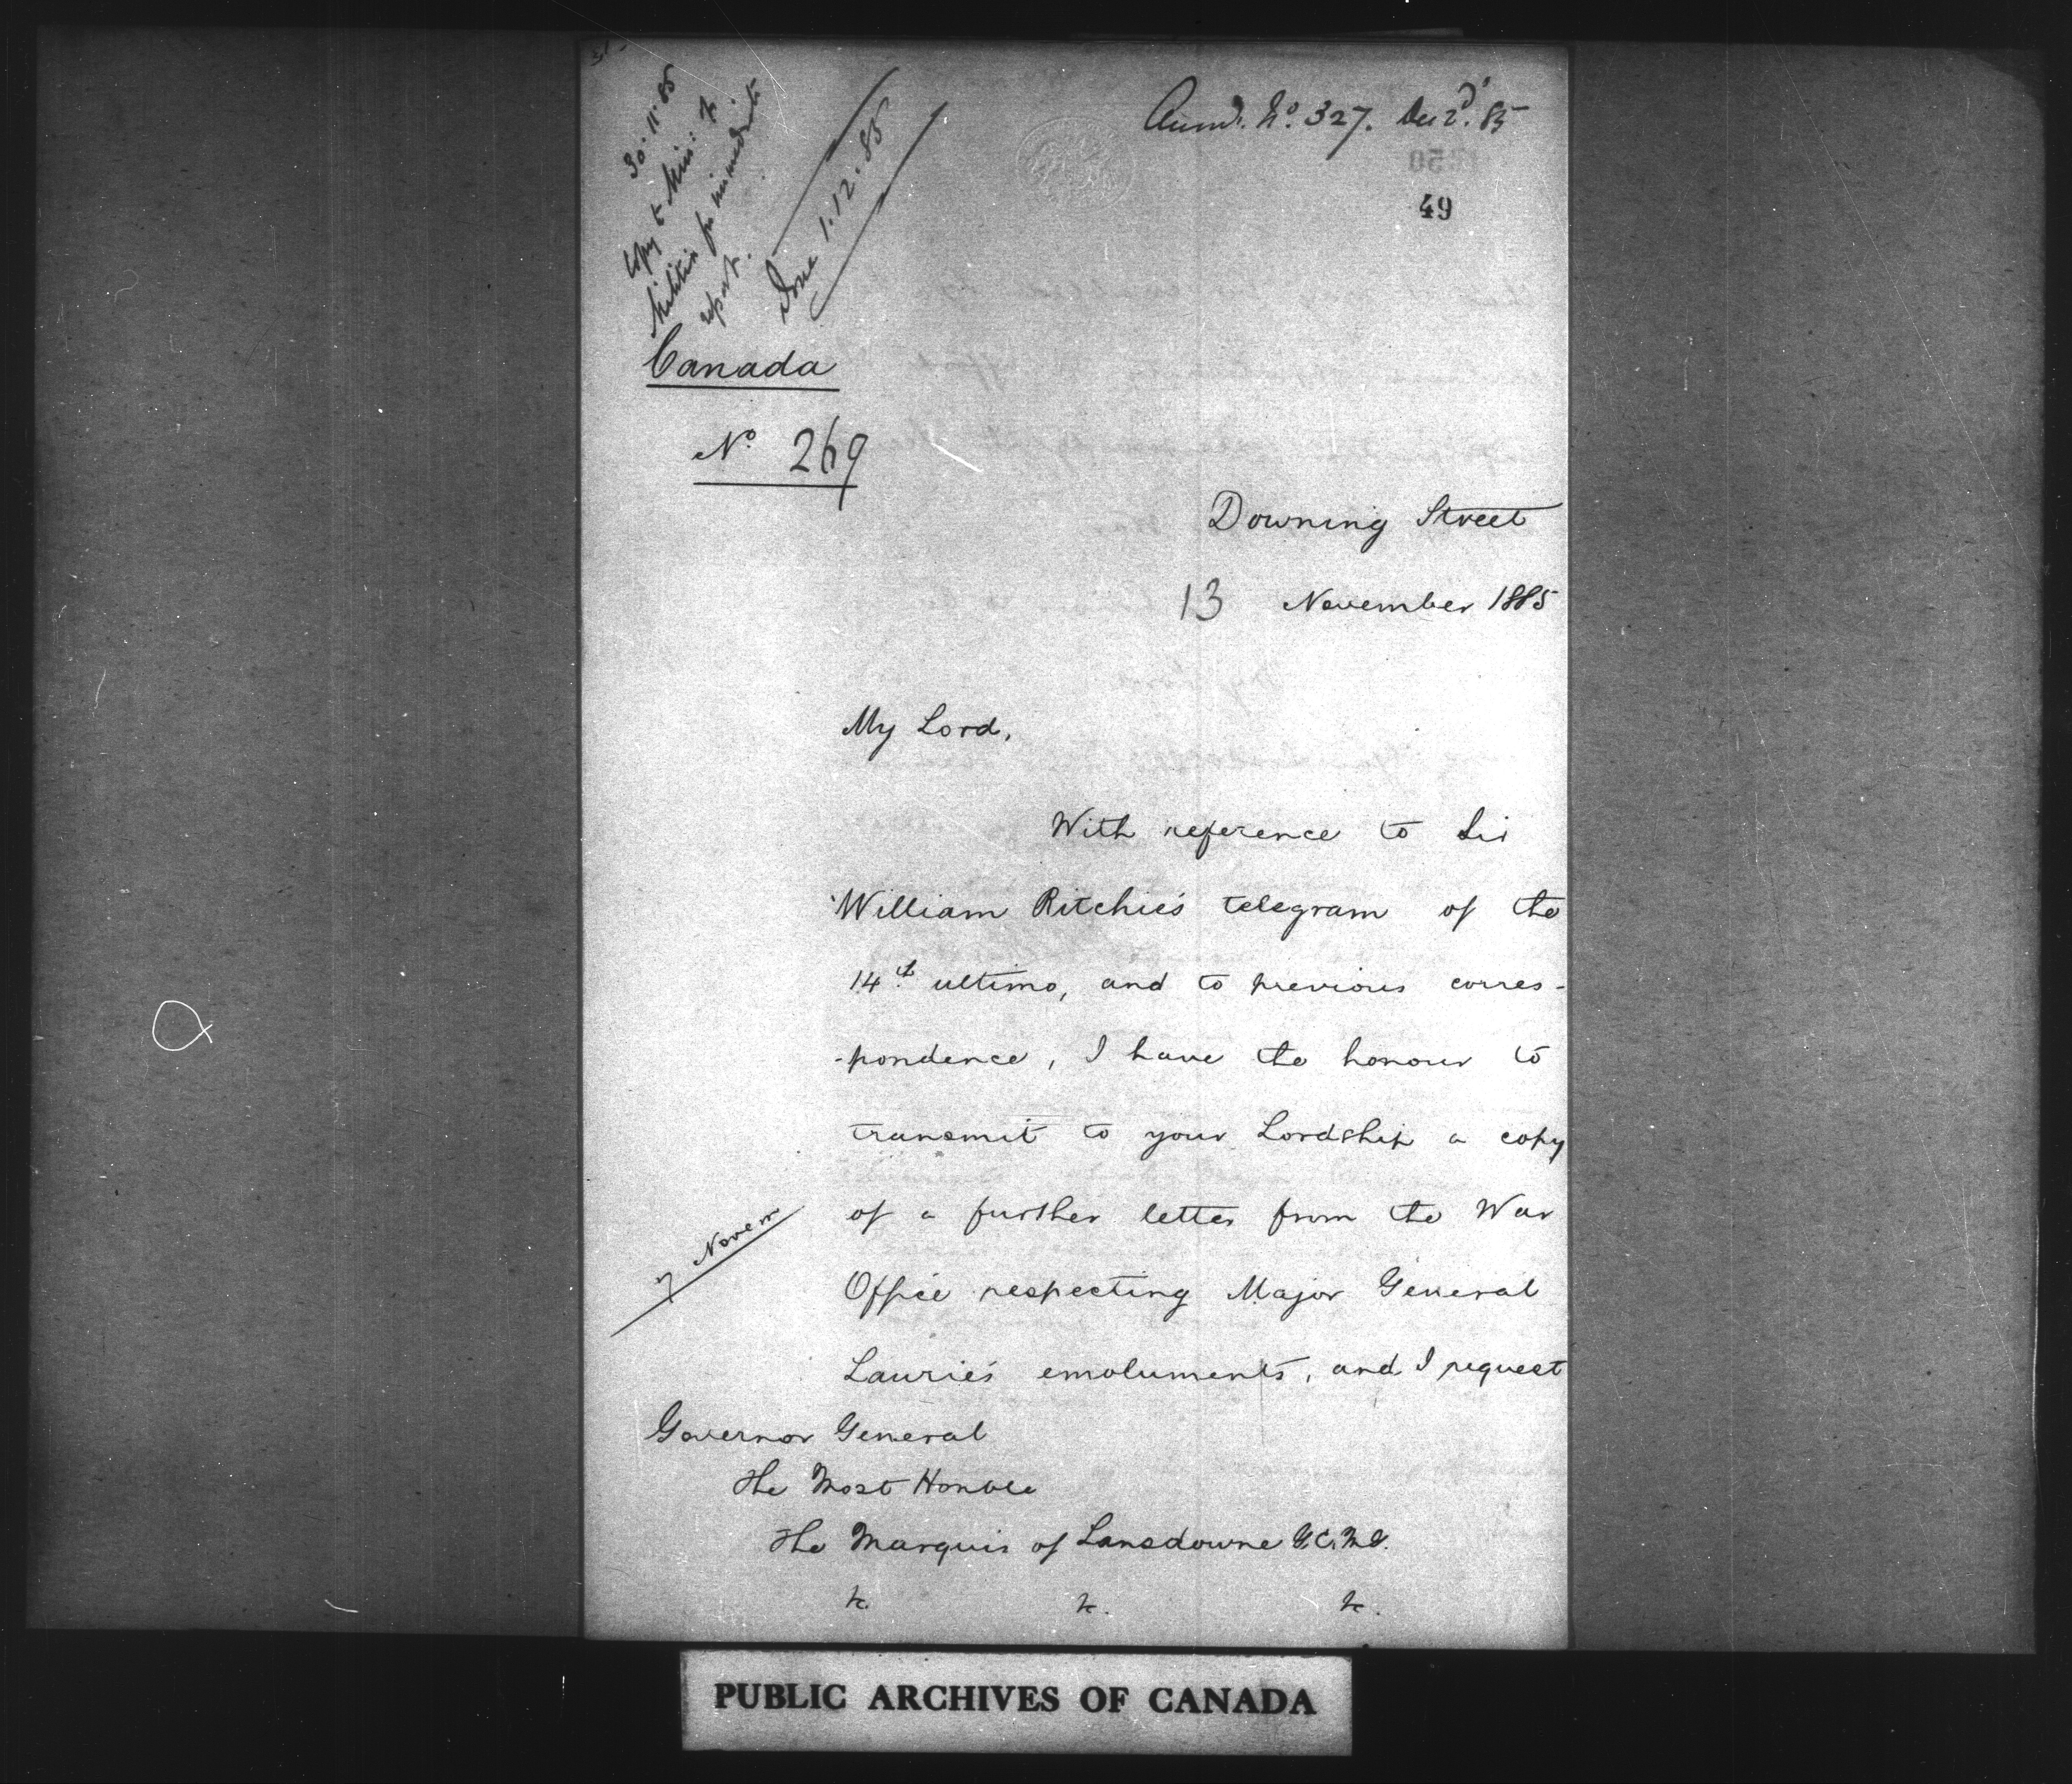 30.11.85
Copy to Min: of
Militia for immediate
report.
Done 1.12.85
Answd. No. 327. Dec 2d. 85
49
Canada
No 269
Downing Street
13 November 1885
My Lord,
With reference to Sir
William Ritchie's telegram of the
14th ultimo, and to previous corres-
-pondence, I have the honour to
transmit to your Lordship a copy
of a further letter from the War
7 Novem
Office respecting Major General
Laurie's emoluments, and I request
Governor General
The Most Honble
The Marquis of Lansdowne G.C.M.G.
&c. &c. &c.
PUBLIC ARCHIVES OF CANADA